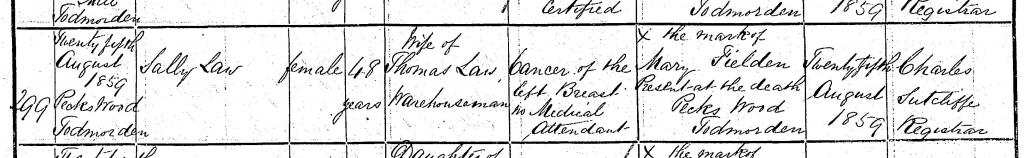 Todmorden
Certified
Todmorden
1859
Registrar
Twenty fifth
August
1859
Pecks Wood
Todmorden
299
Sally Law
female
48
years
Wife of
Thomas Law
Warehouseman
Cancer of the
left Breast
no Medical
Attendant
X the mark of
Mary Fielden
Present at the death
Pecks Wood
Todmorden
Twenty fifth
August
1859
Charles
Sutcliffe
Registrar
Daughter of
X the mark of